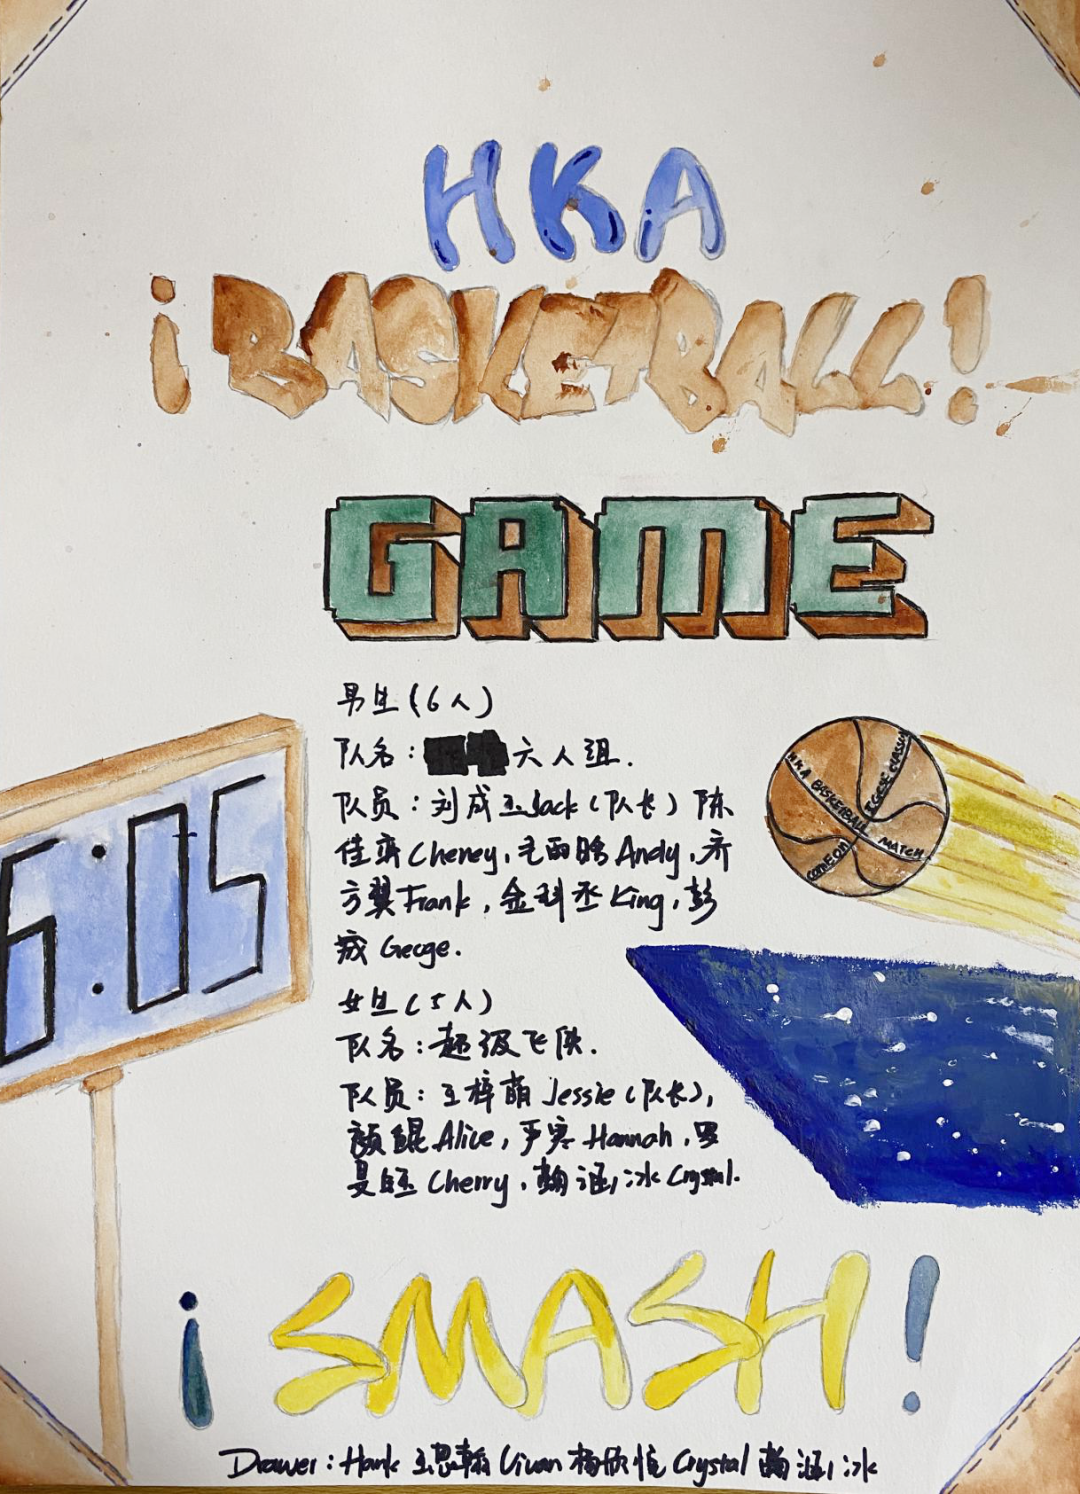 HKA
¡BASKETBALL!
GAME
男生(6人)
队名: 六人组.
队员:刘成玉Jack(队长)陈
佳霖Cheney,毛雨晗Andy,齐
方翼Frank,金科丞King,彭
成Geoge.
女生(5人)
队名:超级飞侠.
队员:王梓萌Jessie(队长),
颜鲲Alice,尹寒Hannah,罗
旻Cherry,韩涵冰Crystal.
6:05
HKA BASKETBALL MATCH
COME ON
¡SMASH!
Drawer:Hank 王思翰 Vivan 杨欣悦 Crystal 韩涵冰